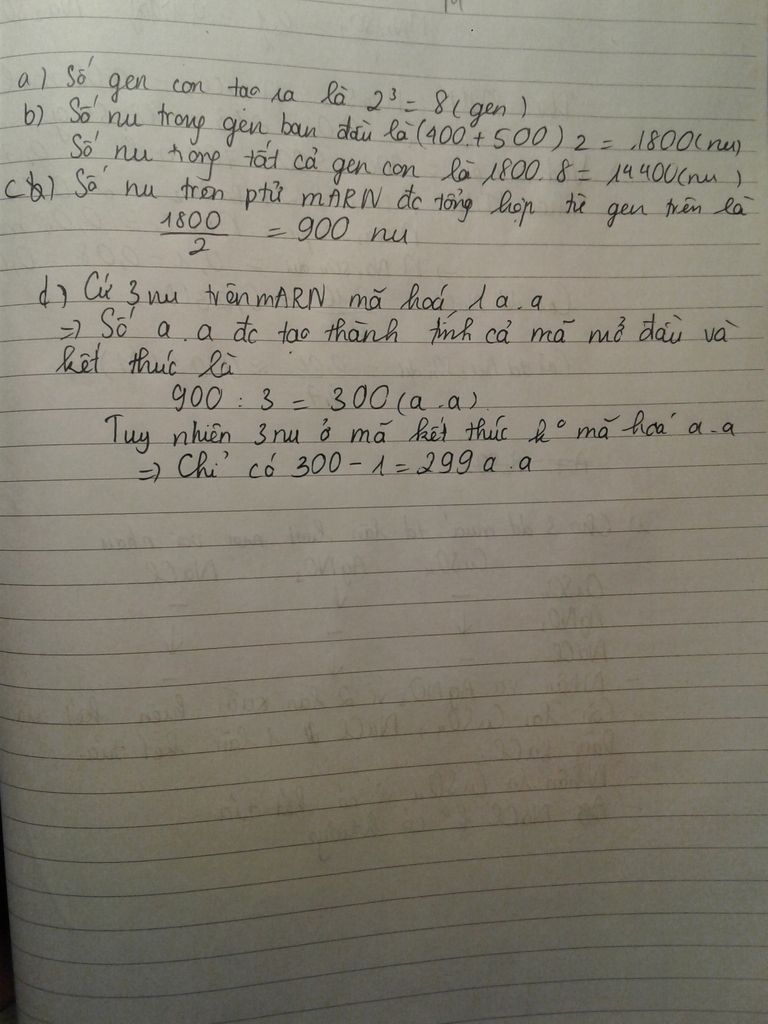 a) Số gen con tạo ra là 2³ = 8 (gen)
b) Số nu trong gen ban đầu là (400 + 500) 2 = 1800 (nu)
Số nu trong tất cả gen con là 1800. 8 = 14400 (nu)
c) Số nu trên ptử mARN đc tổng hợp từ gen trên là
1800/2 = 900 nu
d) Cứ 3 nu trên mARN mã hoá 1 a.a
=> Số a.a đc tạo thành tính cả mã mở đầu và
kết thúc là
900 : 3 = 300 (a.a)
Tuy nhiên 3 nu ở mã kết thúc k° mã hoá a.a
=> Chỉ có 300 - 1 = 299 a.a